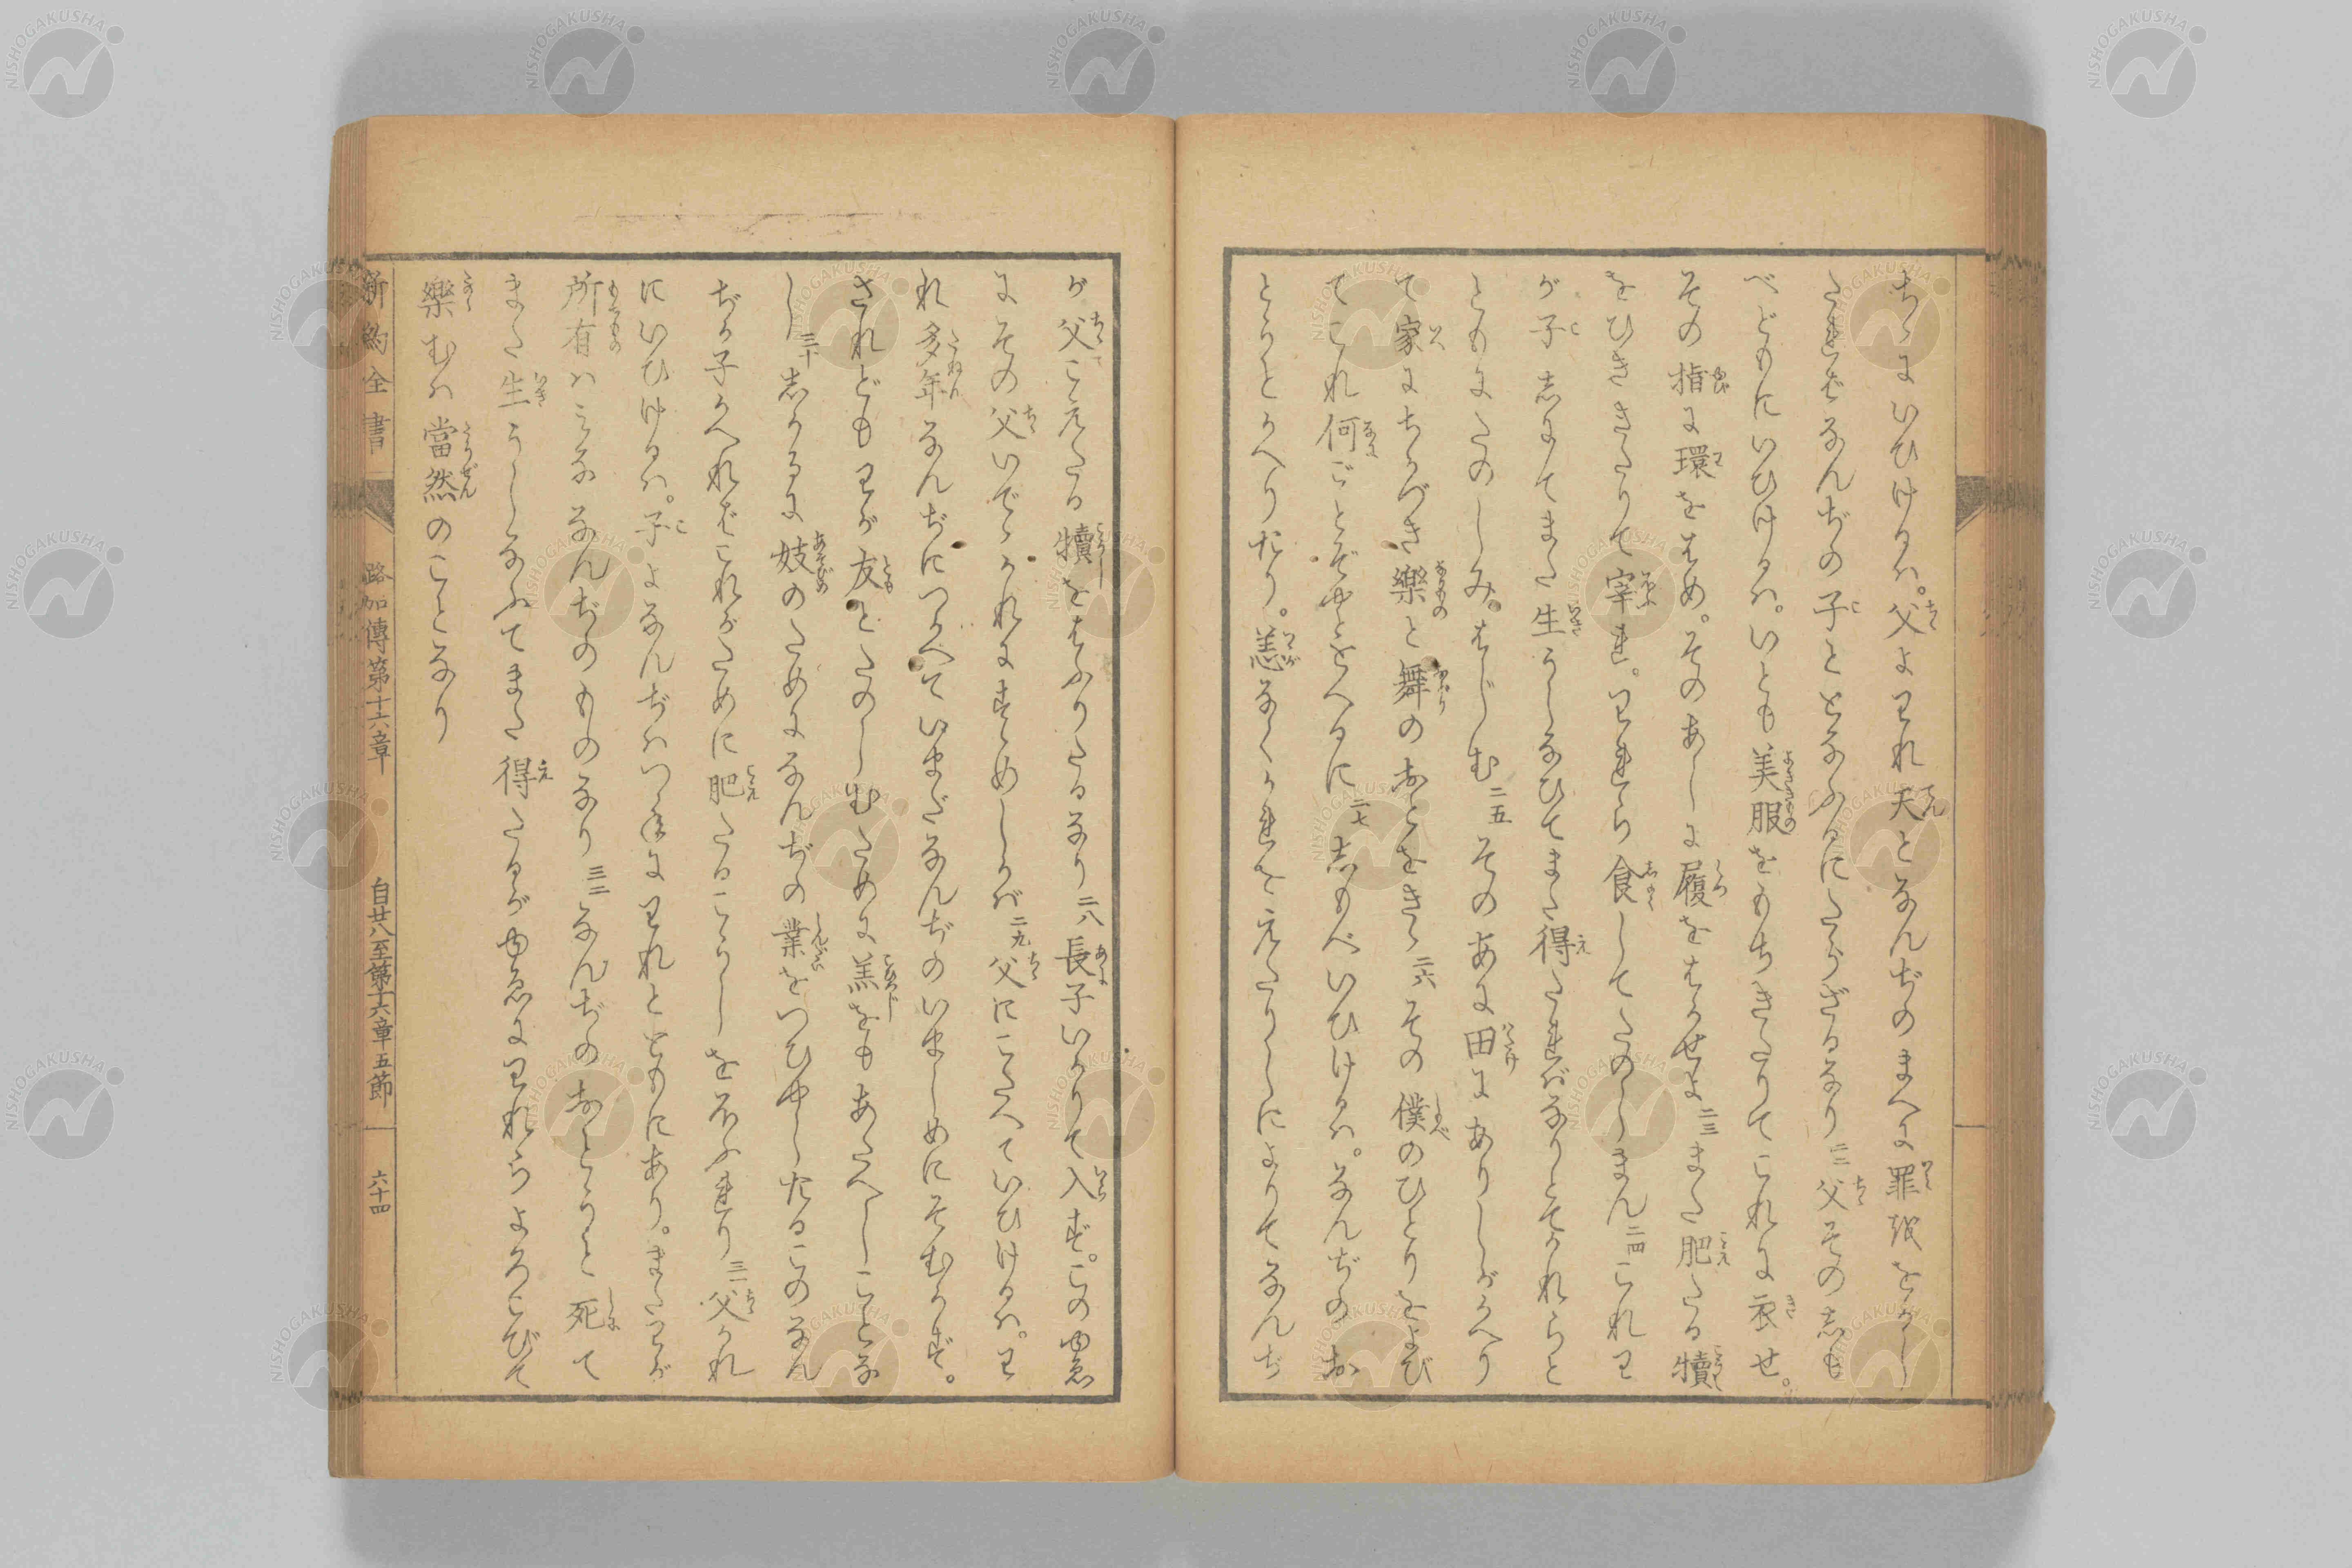 ちゝにいひけるハ。父よわれ天となんぢのまへに罪越をかし
たればなんぢの子ととなふるにたらざるなり 二二 父その志も
べどもにいひけるハ。いとも美服をもちきたりてこれに衣せ。
その指に環をはめ。そのあしに履をはかせよ 二三 また肥たる犢
をひききたりて宰れ。われら食してたのしまん 二四 これわ
が子志にてまた生うしなひてまた得たればなりとてかれらと
ともにたのしみ。はじむ 二五 そのあに田にありしがかへり
て家にちかづき樂と舞のおとをきゝ 二六 その僕のひとりをよび
てこれ何ごとぞやとをへるに 二七 志もべいひけるハ。なんぢのお
とうとかへりたり。恙なくかれをえたりしによりてなんぢ
が父こえたる犢をほふりたるなり 二八 長子いかりて入ず。このゆゑ
にその父いでゝかれにすゝめしかバ 二九 父にこたへていひけるハ。わ
れ多年なんぢにつかへていまだなんぢのいましめにそむかず。
されどもわが友とたのしむために羔をもあたへしことな
し 三十 志かるに妓のためになんぢの業をつひやしたるこのなん
ぢが子かへればこれがために肥たるこうしをほふれり 三一 父かれ
にいひけるハ。子よなんぢハつねにわれとともにあり。またわが
所有ハみななんぢのものなり 三二 なんぢのおとうと死て
また生うしなふてまた得たるがゆゑにわれらよろこびて
樂むハ當然のことなり
新約全書 路加傳第十六章 自廿八至第十六章五節 六十四
NISHOGAKUSHA